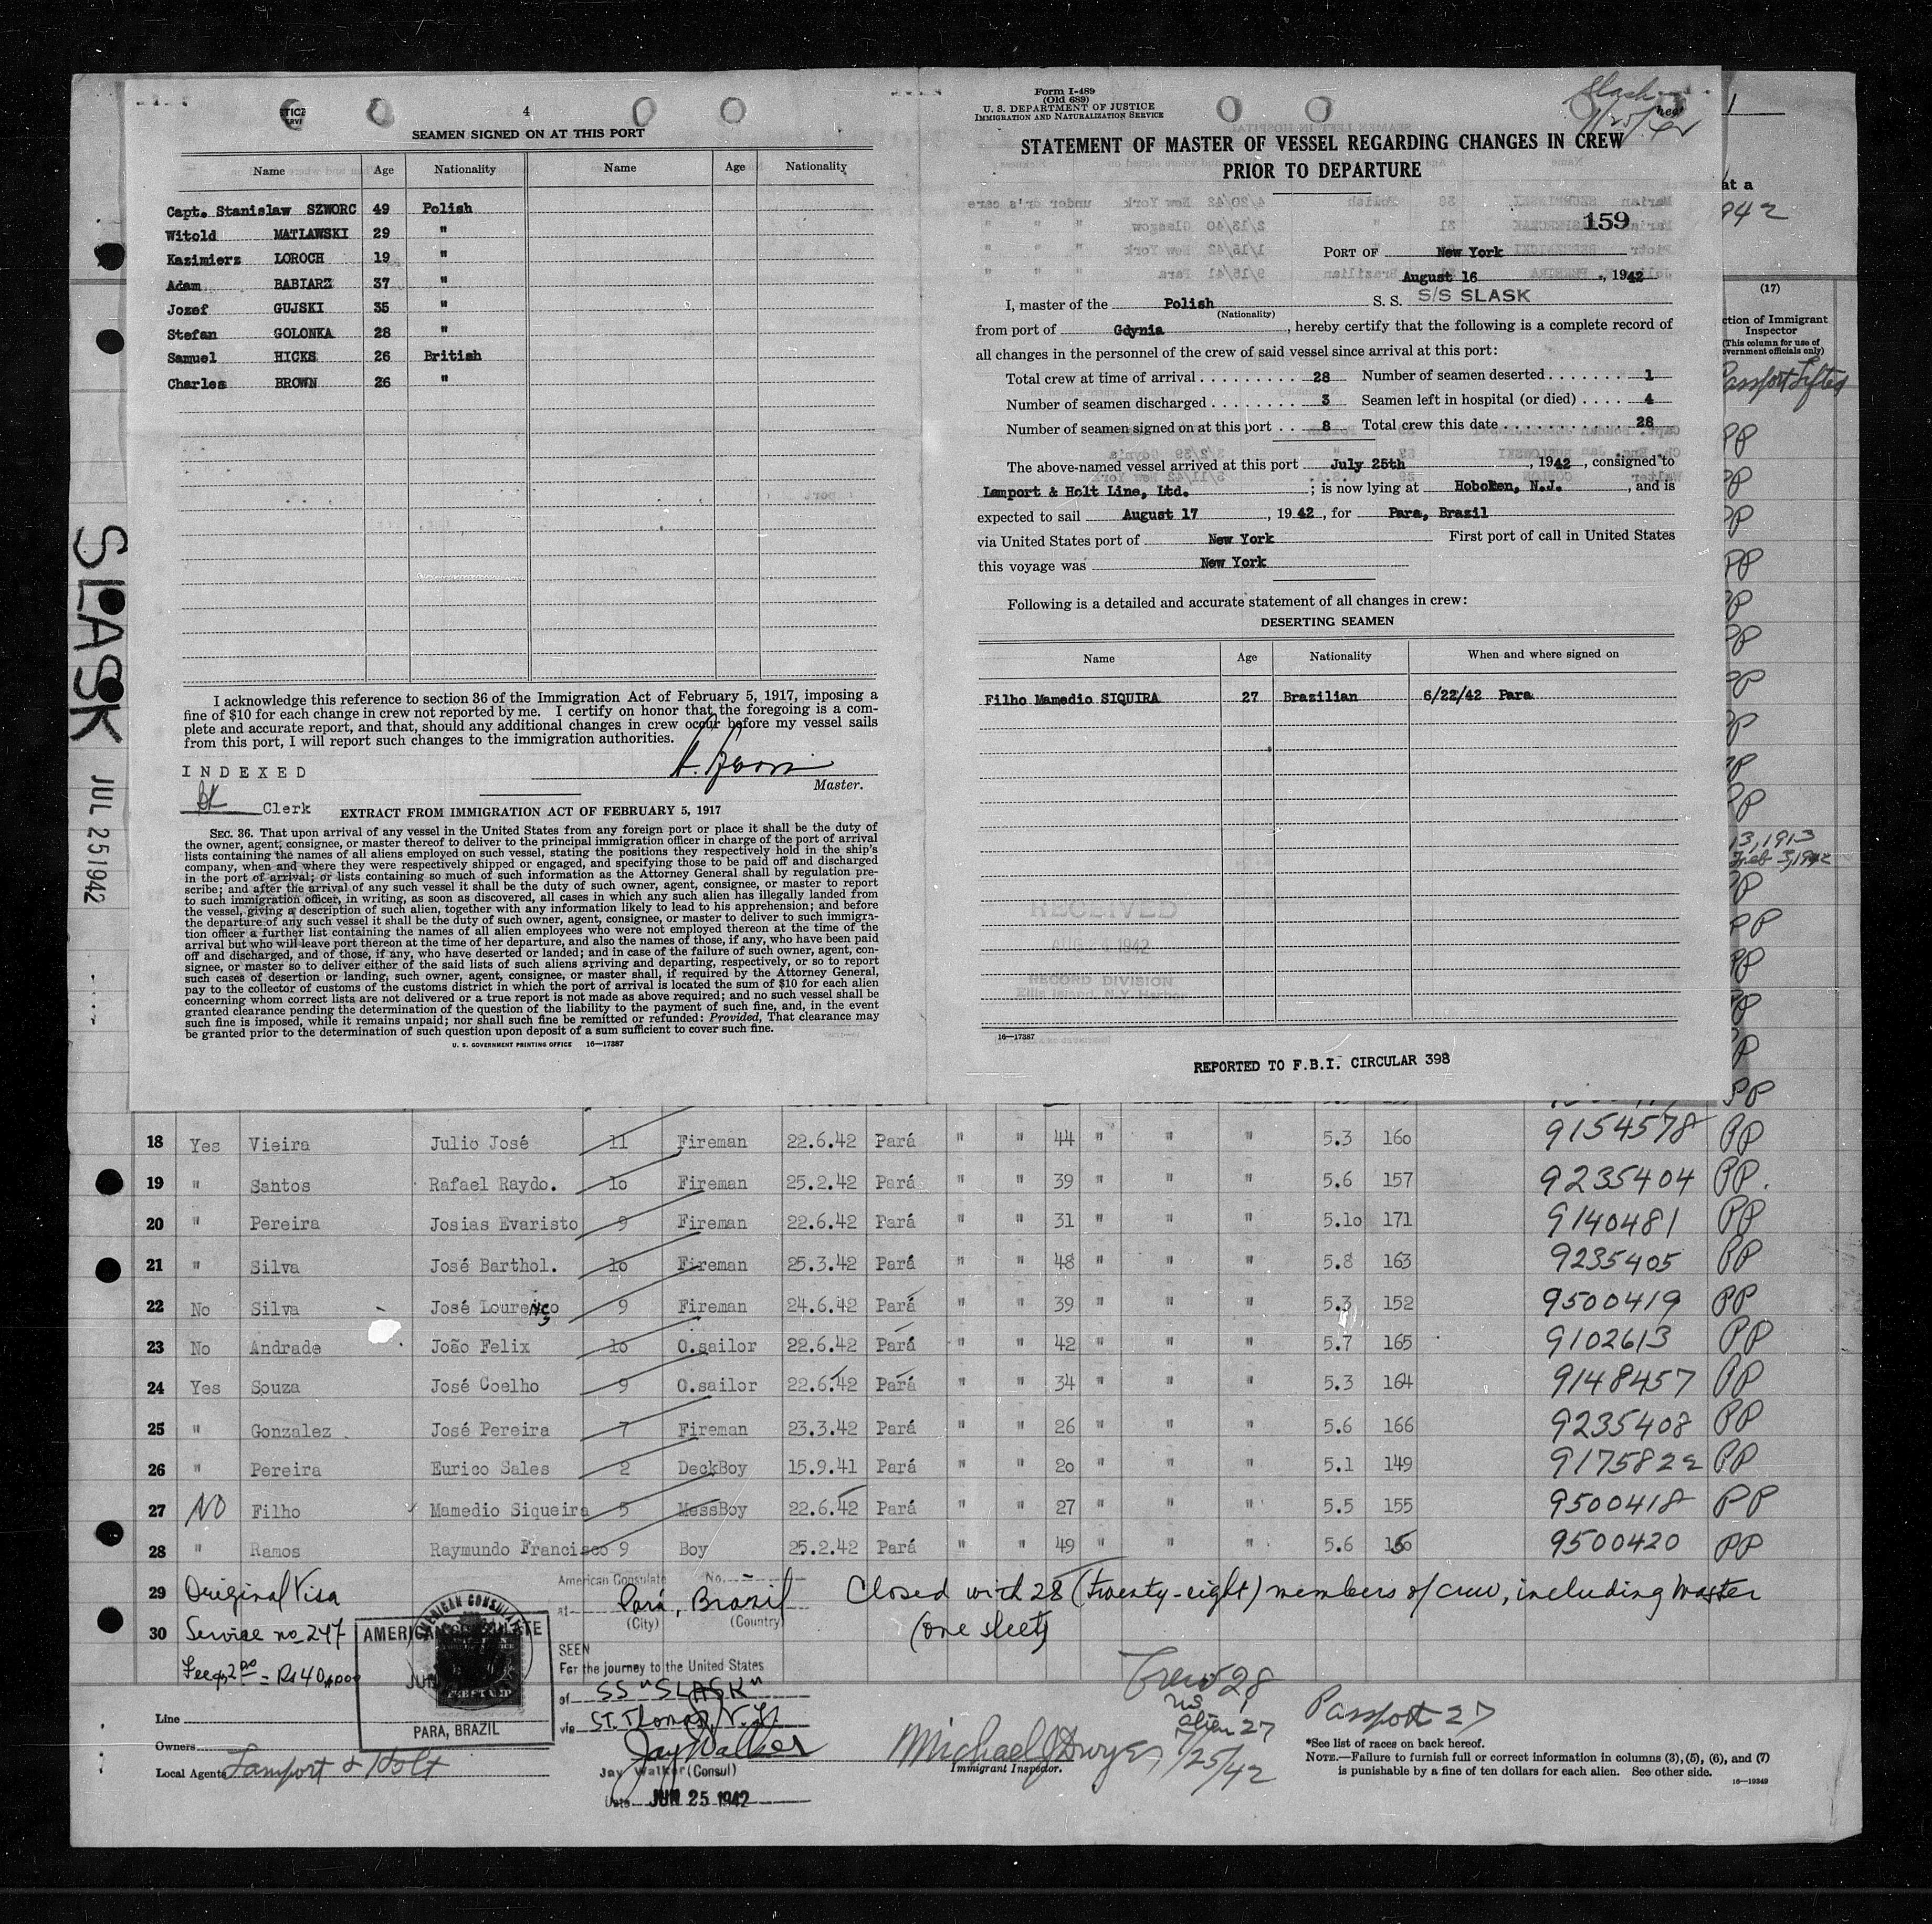 4
SEAMEN SIGNED ON AT THIS PORT
Name Age Nationality Name Age Nationality
Capt. Stanislaw SZWORC 49 Polish
Witold MATLAWSKI 29 "
Kazimierz LOROCH 19 "
Adam BABIARZ 37 "
Jozef GUJSKI 35 "
Stefan GOLONKA 28 "
Samuel HICKS 26 British
Charles BROWN 26 "
I acknowledge this reference to section 36 of the Immigration Act of February 5, 1917, imposing a
fine of $10 for each change in crew not reported by me. I certify on honor that the foregoing is a com-
plete and accurate report, and that, should any additional changes in crew occur before my vessel sails
from this port, I will report such changes to the immigration authorities.
INDEXED
Master.
Clerk
EXTRACT FROM IMMIGRATION ACT OF FEBRUARY 5, 1917
SEC. 36. That upon arrival of any vessel in the United States from any foreign port or place it shall be the duty of
the owner, agent, consignee, or master thereof to deliver to the principal immigration officer in charge of the port of arrival
lists containing the names of all aliens employed on such vessel, stating the positions they respectively hold in the ship's
company, when and where they were respectively shipped or engaged, and specifying those to be paid off and discharged
in the port of arrival; or lists containing so much of such information as the Attorney General shall by regulation pre-
scribe; and after the arrival of any such vessel it shall be the duty of such owner, agent, consignee, or master to report
to such immigration officer, in writing, as soon as discovered, all cases in which any such alien has illegally landed from
the vessel, giving a description of such alien, together with any information likely to lead to his apprehension; and before
the departure of any such vessel it shall be the duty of such owner, agent, consignee, or master to deliver to such immigra-
tion officer a further list containing the names of all alien employees who were not employed thereon at the time of the
arrival but who will leave port thereon at the time of her departure, and also the names of those, if any, who have been paid
off and discharged, and of those, if any, who have deserted or landed; and in case of the failure of such owner, agent, con-
signee, or master so to deliver either of the said lists of such aliens arriving and departing, respectively, or so to report
such cases of desertion or landing, such owner, agent, consignee, or master shall, if required by the Attorney General,
pay to the collector of customs of the customs district in which the port of arrival is located the sum of $10 for each alien
concerning whom correct lists are not delivered or a true report is not made as above required; and no such vessel shall be
granted clearance pending the determination of the question of the liability to the payment of such fine, and, in the event
such fine is imposed, while it remains unpaid; nor shall such fine be remitted or refunded: Provided, That clearance may
be granted prior to the determination of such question upon deposit of a sum sufficient to cover such fine.
U. S. GOVERNMENT PRINTING OFFICE 16—17387
Form I-489
(Old 689)
U. S. DEPARTMENT OF JUSTICE
IMMIGRATION AND NATURALIZATION SERVICE
Slask
STATEMENT OF MASTER OF VESSEL REGARDING CHANGES IN CREW
PRIOR TO DEPARTURE
159
PORT OF New York
August 16, 1942
I, master of the Polish S. S. S/S SLASK
(Nationality)
from port of Gdynia, hereby certify that the following is a complete record of
all changes in the personnel of the crew of said vessel since arrival at this port:
Total crew at time of arrival 28 Number of seamen deserted 1
Number of seamen discharged 3 Seamen left in hospital (or died) 4
Number of seamen signed on at this port 8 Total crew this date 28
The above-named vessel arrived at this port July 25th, 1942, consigned to
Lamport & Holt Line, Ltd.; is now lying at Hoboken, N.J., and is
expected to sail August 17, 1942, for Para, Brazil
via United States port of New York First port of call in United States
this voyage was New York
Following is a detailed and accurate statement of all changes in crew:
DESERTING SEAMEN
Name Age Nationality When and where signed on
Filho Mamedio SIQUIRA 27 Brazilian 6/22/42 Para
RECEIVED
AUG 24 1942
RECORD DIVISION
Ellis Island, N.Y. Harbor
16—17387
REPORTED TO F.B.I. CIRCULAR 398
SLASK
JUL 25 1942
at a
942
(17)
ction of Immigrant
Inspector
(This column for use of
overnment officials only)
Passport Lifted
13, 1913
Feb 3, 1942
18 Yes Vieira Julio José 11 Fireman 22.6.42 Pará " " 44 " " " 5.3 160 9154578 PP
19 " Santos Rafael Raydo. 10 Fireman 25.2.42 Pará " " 39 " " " 5.6 157 9235404 PP.
20 " Pereira Josias Evaristo 9 Fireman 22.6.42 Pará " " 31 " " " 5.10 171 9140481 PP
21 " Silva José Barthol. 10 Fireman 25.3.42 Pará " " 48 " " " 5.8 163 9235405 PP
22 No Silva José Lourenço 9 Fireman 24.6.42 Pará " " 39 " " " 5.3 152 9500419 PP
23 No Andrade João Felix 10 O.sailor 22.6.42 Pará " " 42 " " " 5.7 165 9102613 PP
24 Yes Souza José Coelho 9 O.sailor 22.6.42 Pará " " 34 " " " 5.3 164 9148457 PP
25 " Gonzalez José Pereira 7 Fireman 23.3.42 Pará " " 26 " " " 5.6 166 9235408 PP
26 " Pereira Eurico Sales 2 DeckBoy 15.9.41 Pará " " 20 " " " 5.1 149 9175822 PP
27 NO Filho Mamedio Siqueira 5 MessBoy 22.6.42 Pará " " 27 " " " 5.5 155 9500418 PP
28 " Ramos Raymundo Francisco 9 Boy 25.2.42 Pará " " 49 " " " 5.6 9500420 PP
29 Original Visa
30 Service no. 247
American Consulate No. —
at Pará, Brazil
(City) (Country)
Closed with 28 (twenty-eight) members of crew, including Master
(one sheet)
AMERICAN CONSULATE
PARA, BRAZIL
SEEN
For the journey to the United States
of SS "SLASK"
via ST. Thomas, V.I.
Jay Walker
Jay Walker (Consul)
Date JUN 25 1942
Line
Owners
Local Agents Lamport & Holt
Crew 28
US 1
alien 27
Michael J Dwyer 7/25/42
Immigrant Inspector.
Passport 27
*See list of races on back hereof.
NOTE.—Failure to furnish full or correct information in columns (3), (5), (6), and (7)
is punishable by a fine of ten dollars for each alien. See other side.
16—19349